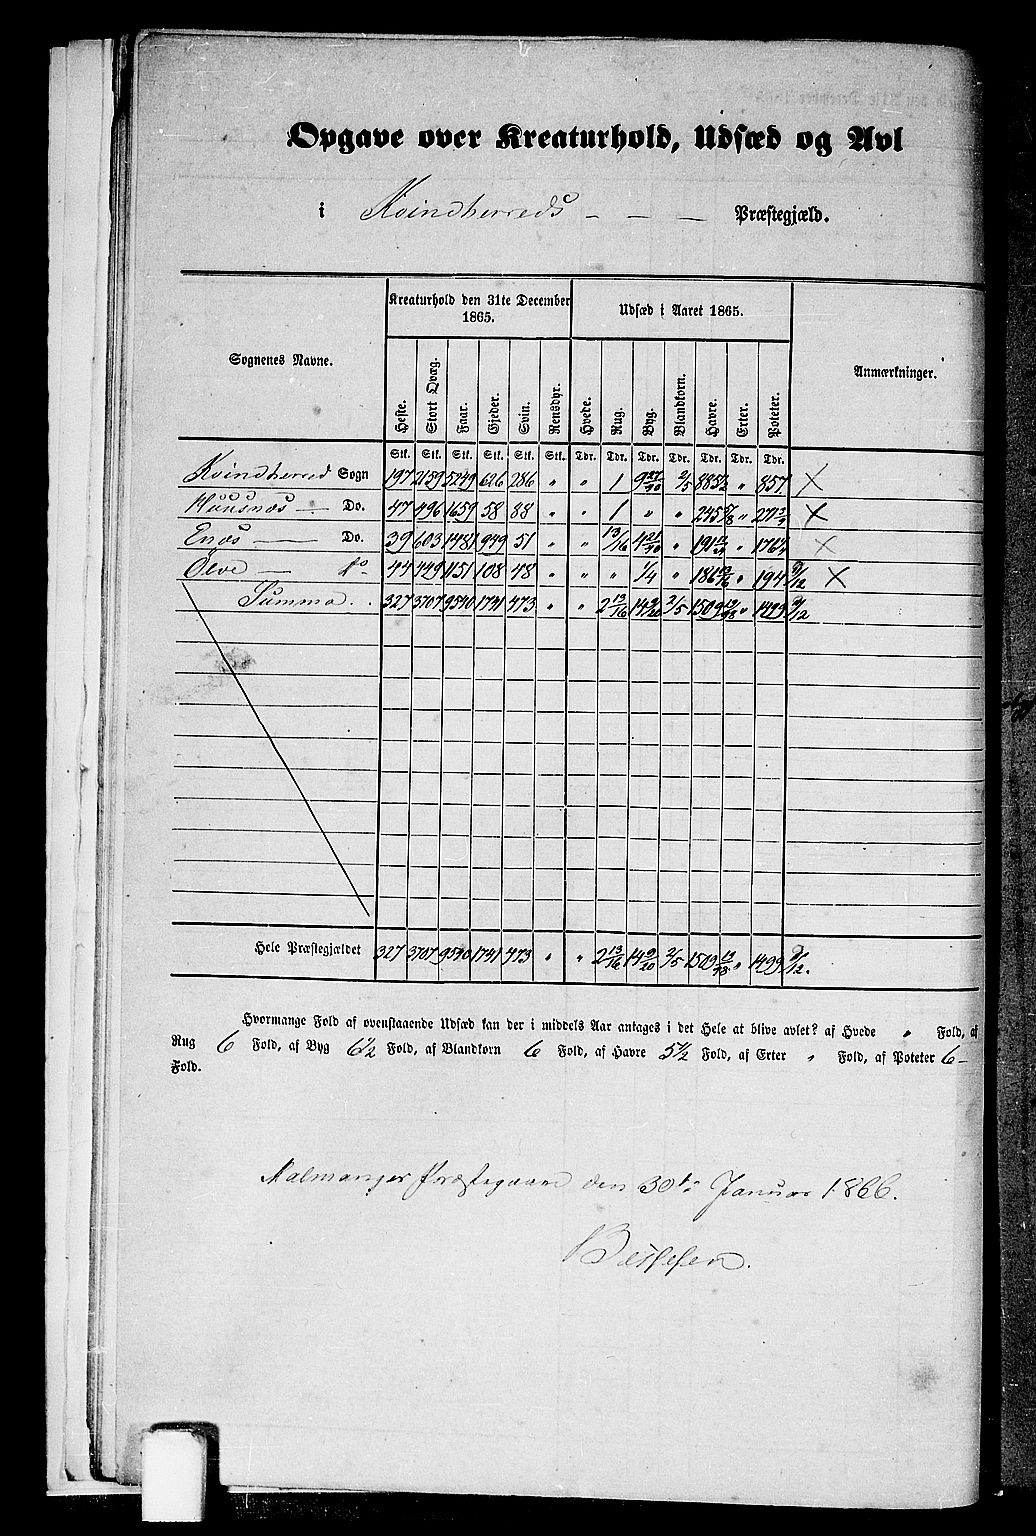 Opgave over Kreaturhold, Udsæd og Avl
i Kvindherreds - - - Præstegjæld.
Sognenes Navne. Kreaturhold den 31te December 1865. Udsæd i Aaret 1865. Anmærkninger.
Heste. Stort Qvæg. Faar. Gjeder. Svin. Rensdyr. Hvede. Rug. Byg. Blandkorn. Havre. Erter. Poteter.
Stk. Stk. Stk. Stk. Stk. Stk. Tdr. Tdr. Tdr. Tdr. Tdr. Tdr. Tdr.
Kvindherred Sogn 197 2159 5249 626 286 " " 1 9 27/40 2/5 885 1/2 " 857 X
Huusnæs Do. 47 496 1659 58 88 " " 1 " " 245 5/8 " X
Enæs Do. 39 603 1481 949 51 " " 13/16 4 21/40 " " X
Ølve do 44 449 1151 108 48 " " " 1/4 " " 194 9/12 X
Summa . . 327 3707 9540 1741 473 " " 2 13/16 14 9/20 2/5 1509 " 1499 9/12
Hele Præstegjældet 327 3707 9540 1741 473 " " 2 13/16 14 9/20 2/5 1509 " 1499 9/12.
Hvormange Fold af ovenstaaende Udsæd kan der i middels Aar antages i det Hele at blive avlet? af Hvede " Fold, af
Rug 6 Fold, af Byg 6 1/2 Fold, af Blandkorn 6 Fold, af Havre 5 1/2 Fold, af Erter " Fold, af Poteter 6 -
Fold.
Malmanger Præstegaard den 30te Januar 1866.